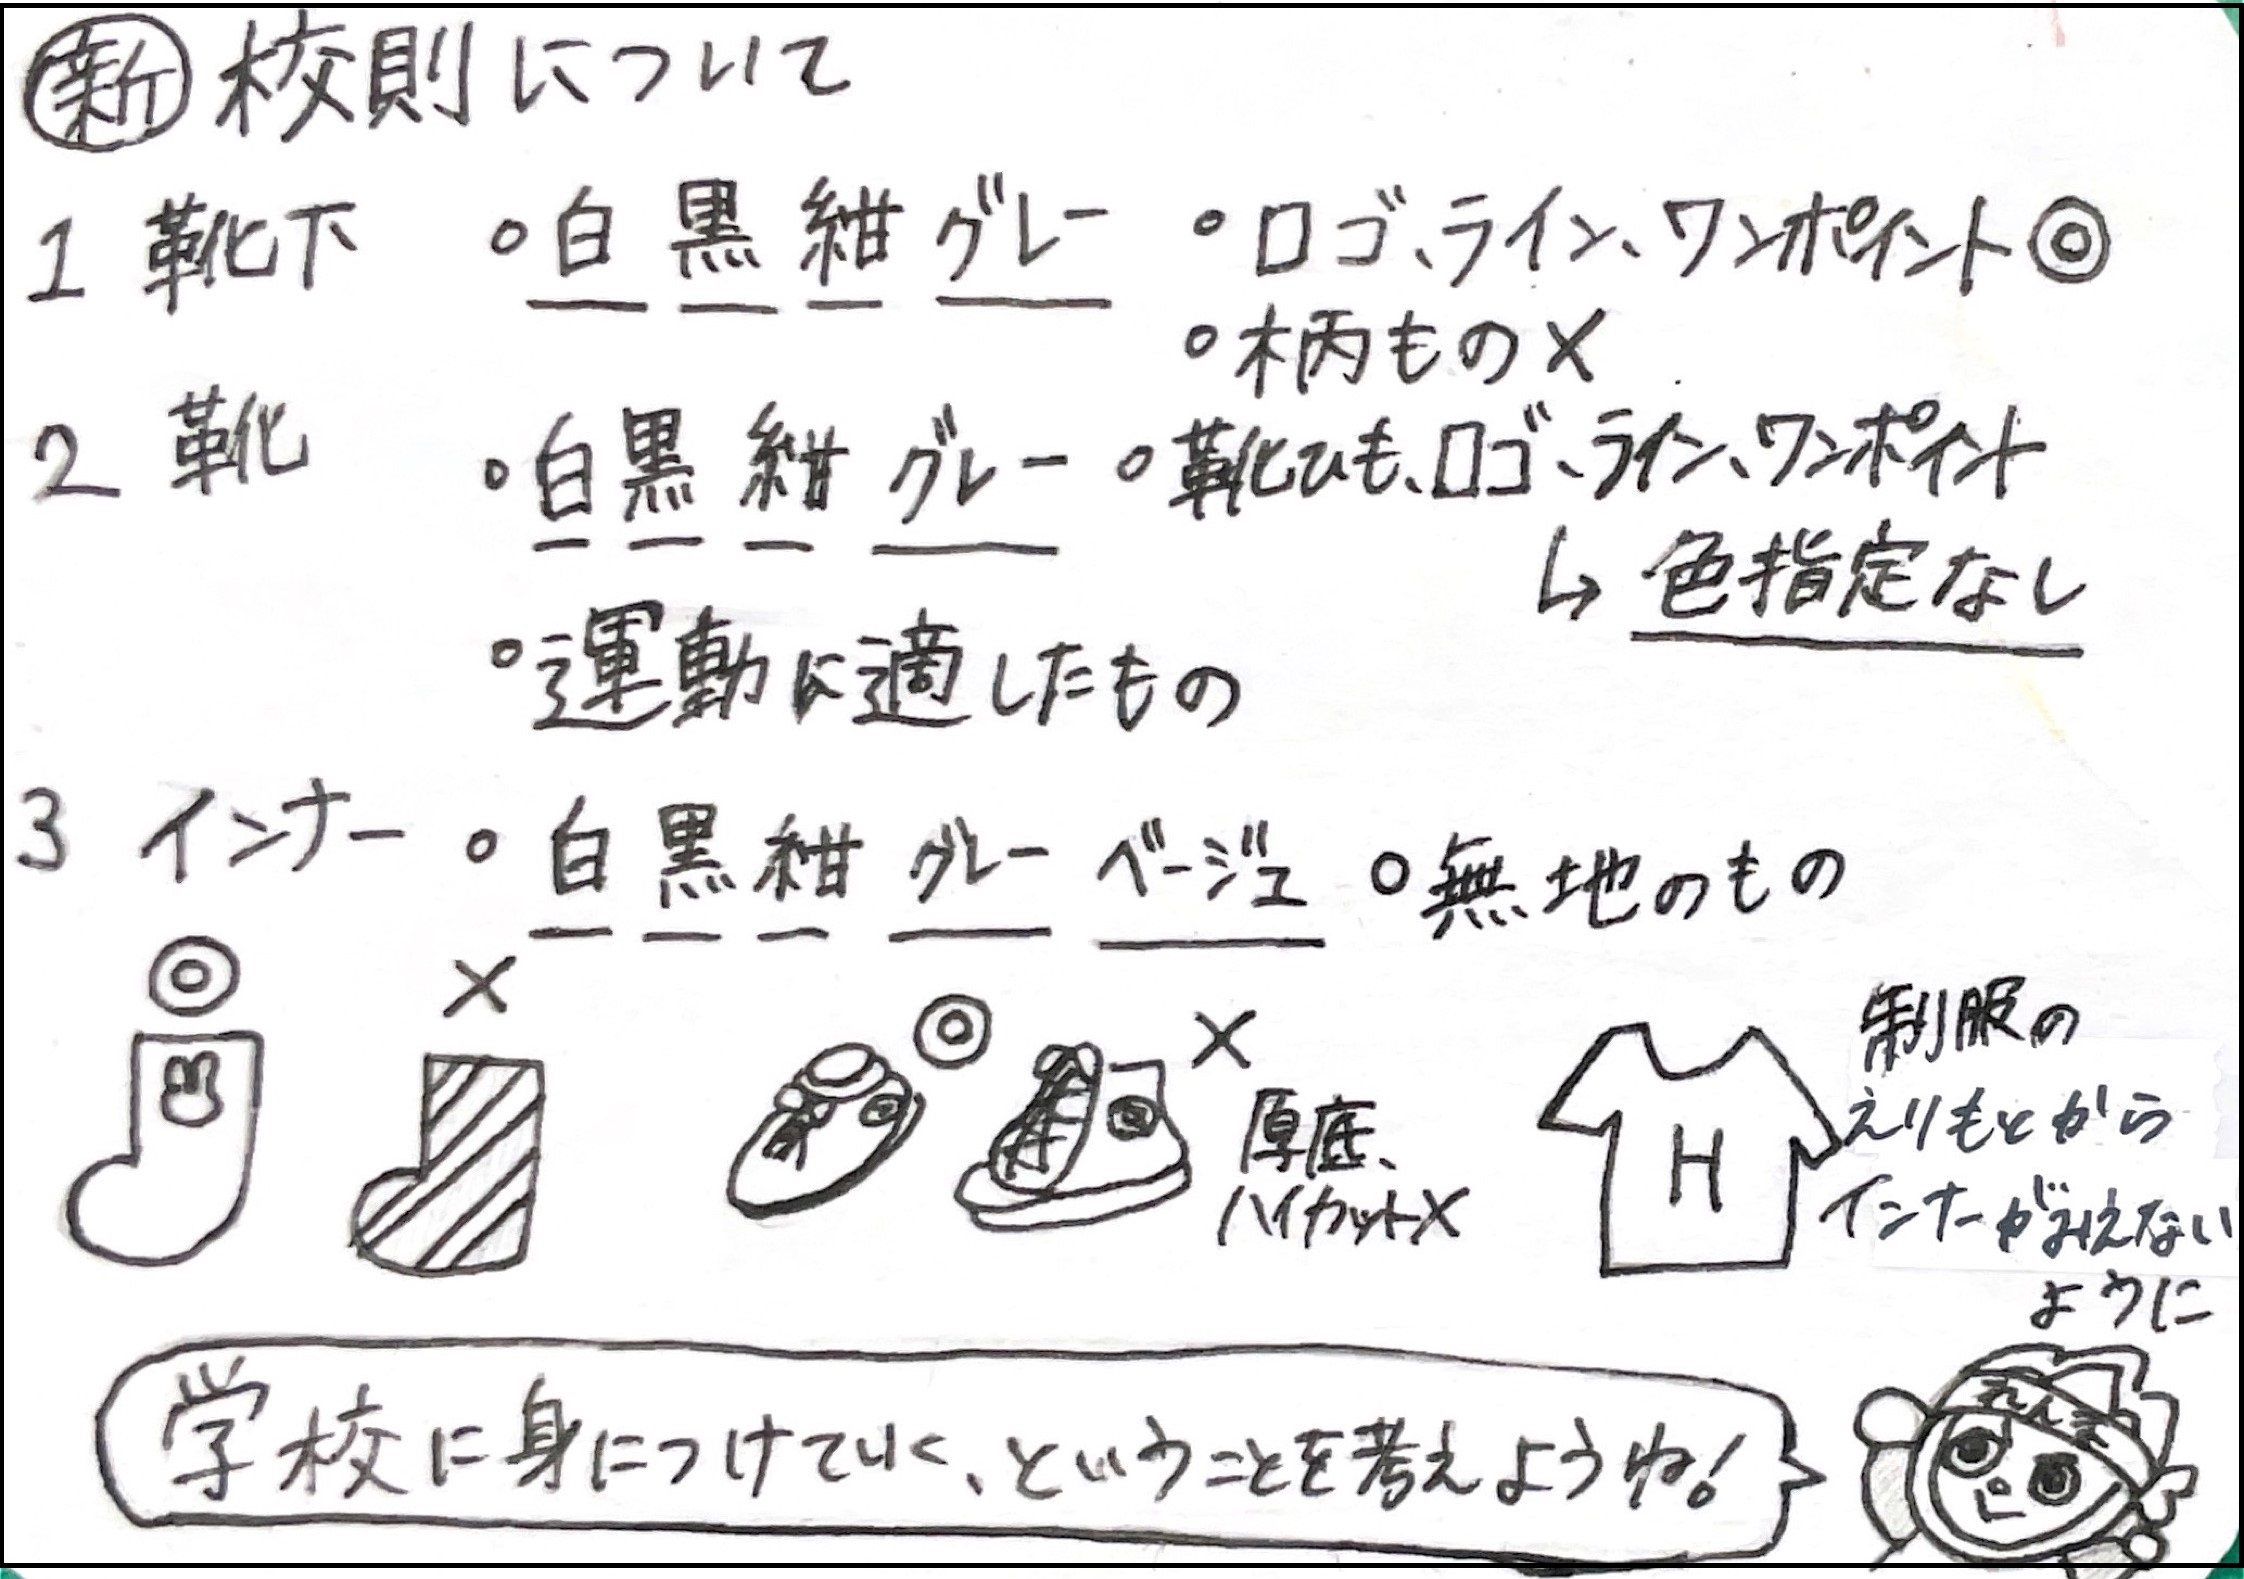 新 校則について
1 靴下 ○白 黒 紺 グレー ○ロゴ、ライン、ワンポイント◎
○柄もの×
2 靴 ○白 黒 紺 グレー ○靴ひも、ロゴ、ライン、ワンポイント
↳ 色指定なし
○運動に適したもの
3 インナー ○白 黒 紺 グレー ベージュ ○無地のもの
◎ ×
◎ ×
厚底、
ハイカット×
H
制服の
えりもとから
インナーがみえない
ように
学校に身につけていく、ということを考えようね!